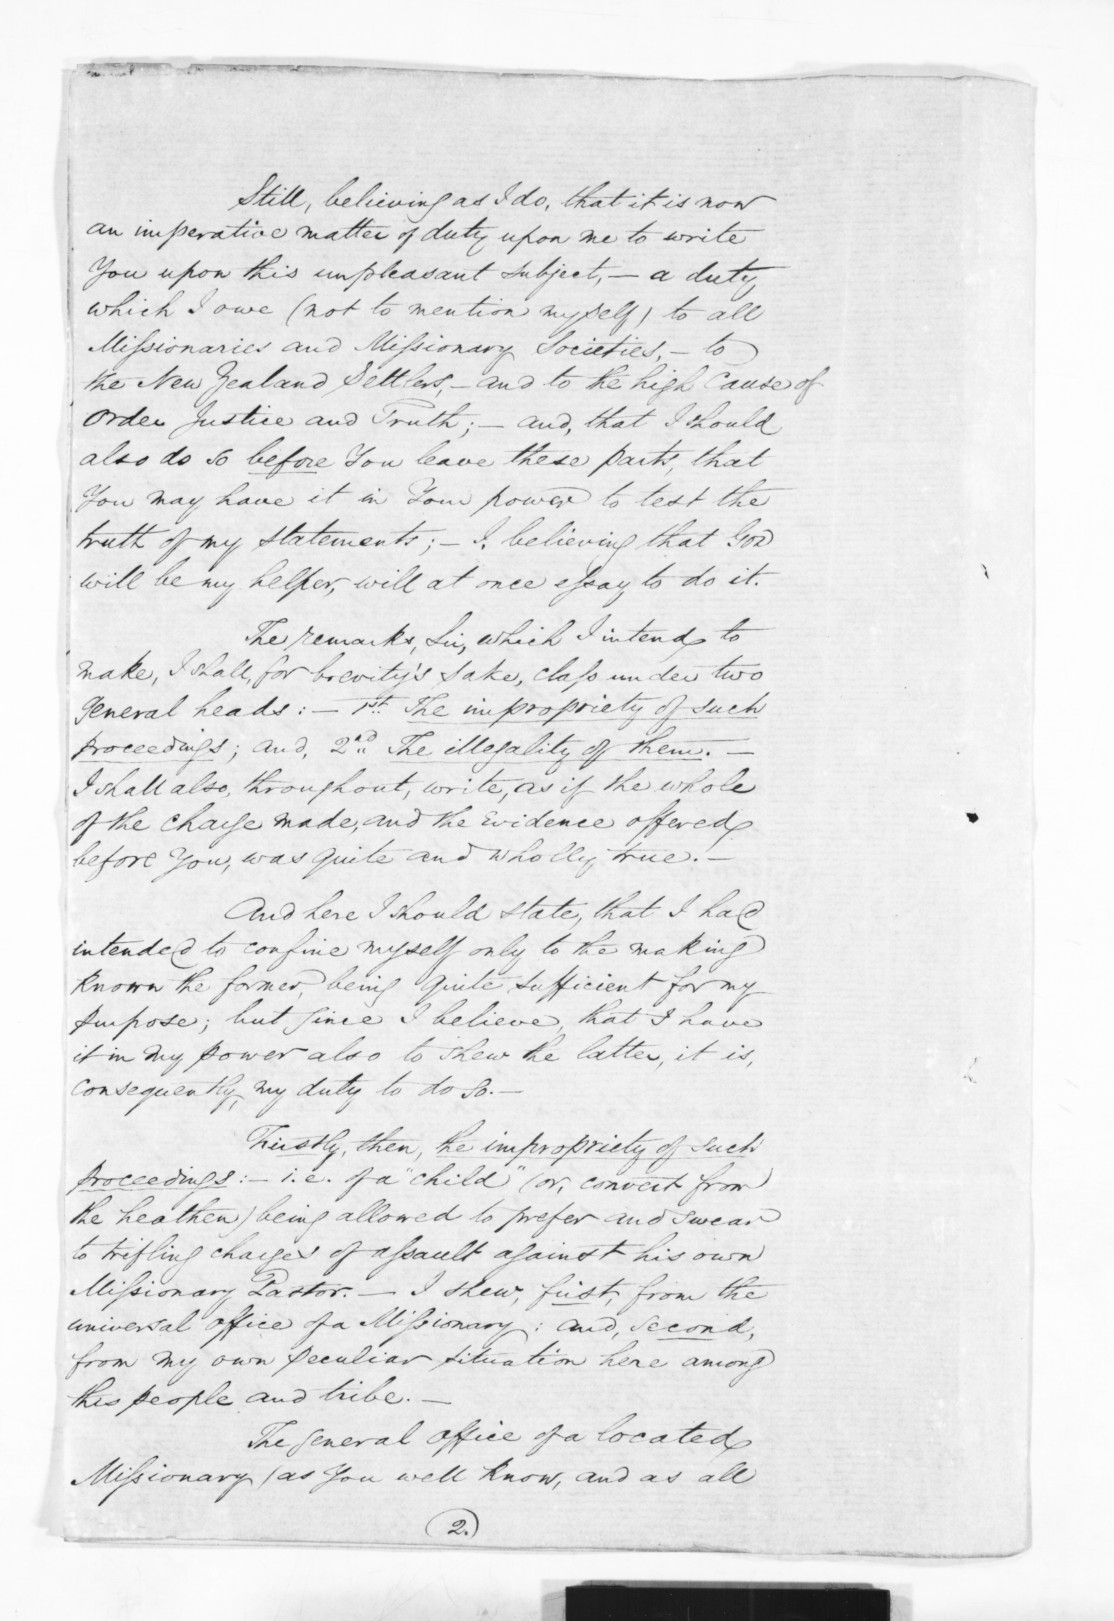 Still, believing as I do, that it is now
an imperative matter of duty upon me to write
You upon this unpleasant subject, — a duty
which I owe (not to mention myself) to all
Missionaries and Missionary Societies, — to
the New Zealand Settlers, — and to the high Cause of
Order Justice and Truth; — and, that I should
also do so before You leave these parts, that
You may have it in Your power to test the
truth of my statements; — I, believing that God
will be my helper, will at once essay to do it.
The remarks, Sir, which I intend to
make, I shall, for brevity's sake, class under two
general heads: — 1st. The impropriety of such
proceedings; and, 2nd The illegality of them. —
I shall also, throughout, write, as if the whole
of the charge made, and the Evidence offered
before You, was quite and wholly true. —
And here I should state, that I had
intended to confine myself only to the making
known the former, being quite sufficient for my
purpose; but since I believe, that I have
it in my power also to shew the latter, it is,
consequently, my duty to do so. —
Firstly, then, the impropriety of such
proceedings: — i.e. of a "child" (or, convert from
the heathen) being allowed to prefer and swear
to trifling charges of assault against his own
Missionary Pastor. — I shew, first, from the
universal office of a Missionary: and, second,
from my own peculiar situation here among
this people and tribe. —
The general office of a located
Missionary (as You well know, and as all
2.